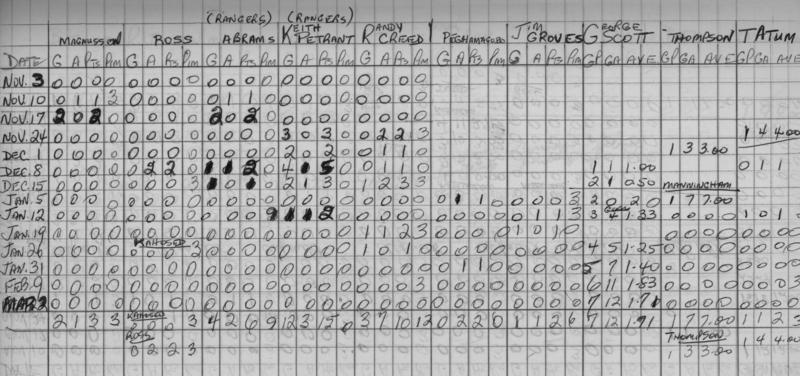 (RANGERS) (RANGERS)
MAGNUSSON ROSS ABRAMS KEITH PETRANT RANDY CREED PEGHAMAGABO JIM GROVES GEORGE SCOTT THOMPSON TATUM
DATE G A Pts Pim G A Pts Pim G A Pts Pim G A Pts Pim G A Pts Pim G A Pts Pim G A Pts Pim GP GA AVE GP GA AVE GP GA AVE
NOV. 3 0 0 0 0 0 0 0 0 0 0 0 0 0 0 0 0 0 0
NOV. 10 0 1 1 3 0 0 0 0 0 1 1 0 0 0 0 0 0 0 0 0
NOV. 17 2 0 2 0 0 0 0 0 2 0 2 0 0 0 0 0 0 0 0
NOV. 24 0 0 0 0 0 0 0 0 0 0 0 0 3 0 3 0 0 2 2 3 1 4 4.00
DEC. 1 0 0 0 0 0 0 0 0 0 0 0 0 2 0 2 0 0 1 1 0 1 3 3.00
DEC. 8 0 0 0 0 0 2 2 0 1 1 2 0 4 1 5 0 0 1 1 0 1 1 1.00 0 1 1
DEC. 15 0 0 0 0 0 0 0 3 1 0 1 0 2 1 3 0 1 2 3 3 2 1 0.50 MANNINGHAM
JAN. 5 0 0 0 0 0 0 0 0 0 0 0 0 0 0 0 0 0 0 0 0 0 1 1 0 0 0 0 3 2 0 2.0 1 7 7.00
JAN. 12 0 0 0 0 0 0 0 0 0 0 0 9 1 1 2 0 0 0 0 0 0 0 0 0 0 1 1 3 3 4 1.33 0 0 0 0 1 0 1
JAN. 19 0 0 0 0 0 0 0 0 0 0 0 0 0 0 0 0 1 1 2 3 0 0 0 0 1 0 1 0 0 0 0 0
JAN. 26 0 0 0 0 KAHOSED 0 0 0 3 0 0 0 0 0 0 0 0 1 0 1 0 0 0 0 0 0 0 0 0 4 5 1.25
JAN. 31 0 0 0 0 0 0 0 0 0 0 0 0 0 0 0 0 0 0 0 0 0 1 1 0 0 0 0 0 5 7 1.40
FEB. 9 0 0 0 0 0 0 0 0 0 0 0 0 0 0 0 0 0 0 0 3 0 0 0 0 0 0 0 0 6 11 1.83
MAR. 2 0 0 0 0 0 0 0 0 0 0 0 0 0 0 0 0 0 0 0 0 0 0 0 0 0 0 0 0 7 12 1.71
2 1 3 3 KAHOSED 0 0 0 3 4 2 6 9 12 3 15 0 3 7 10 12 0 2 2 0 1 1 2 6 7 12 1.71 1 7 7.00 1 1 2 3
ROSS 0 2 2 3 THOMPSON 1 3 3.00 1 4 4.00